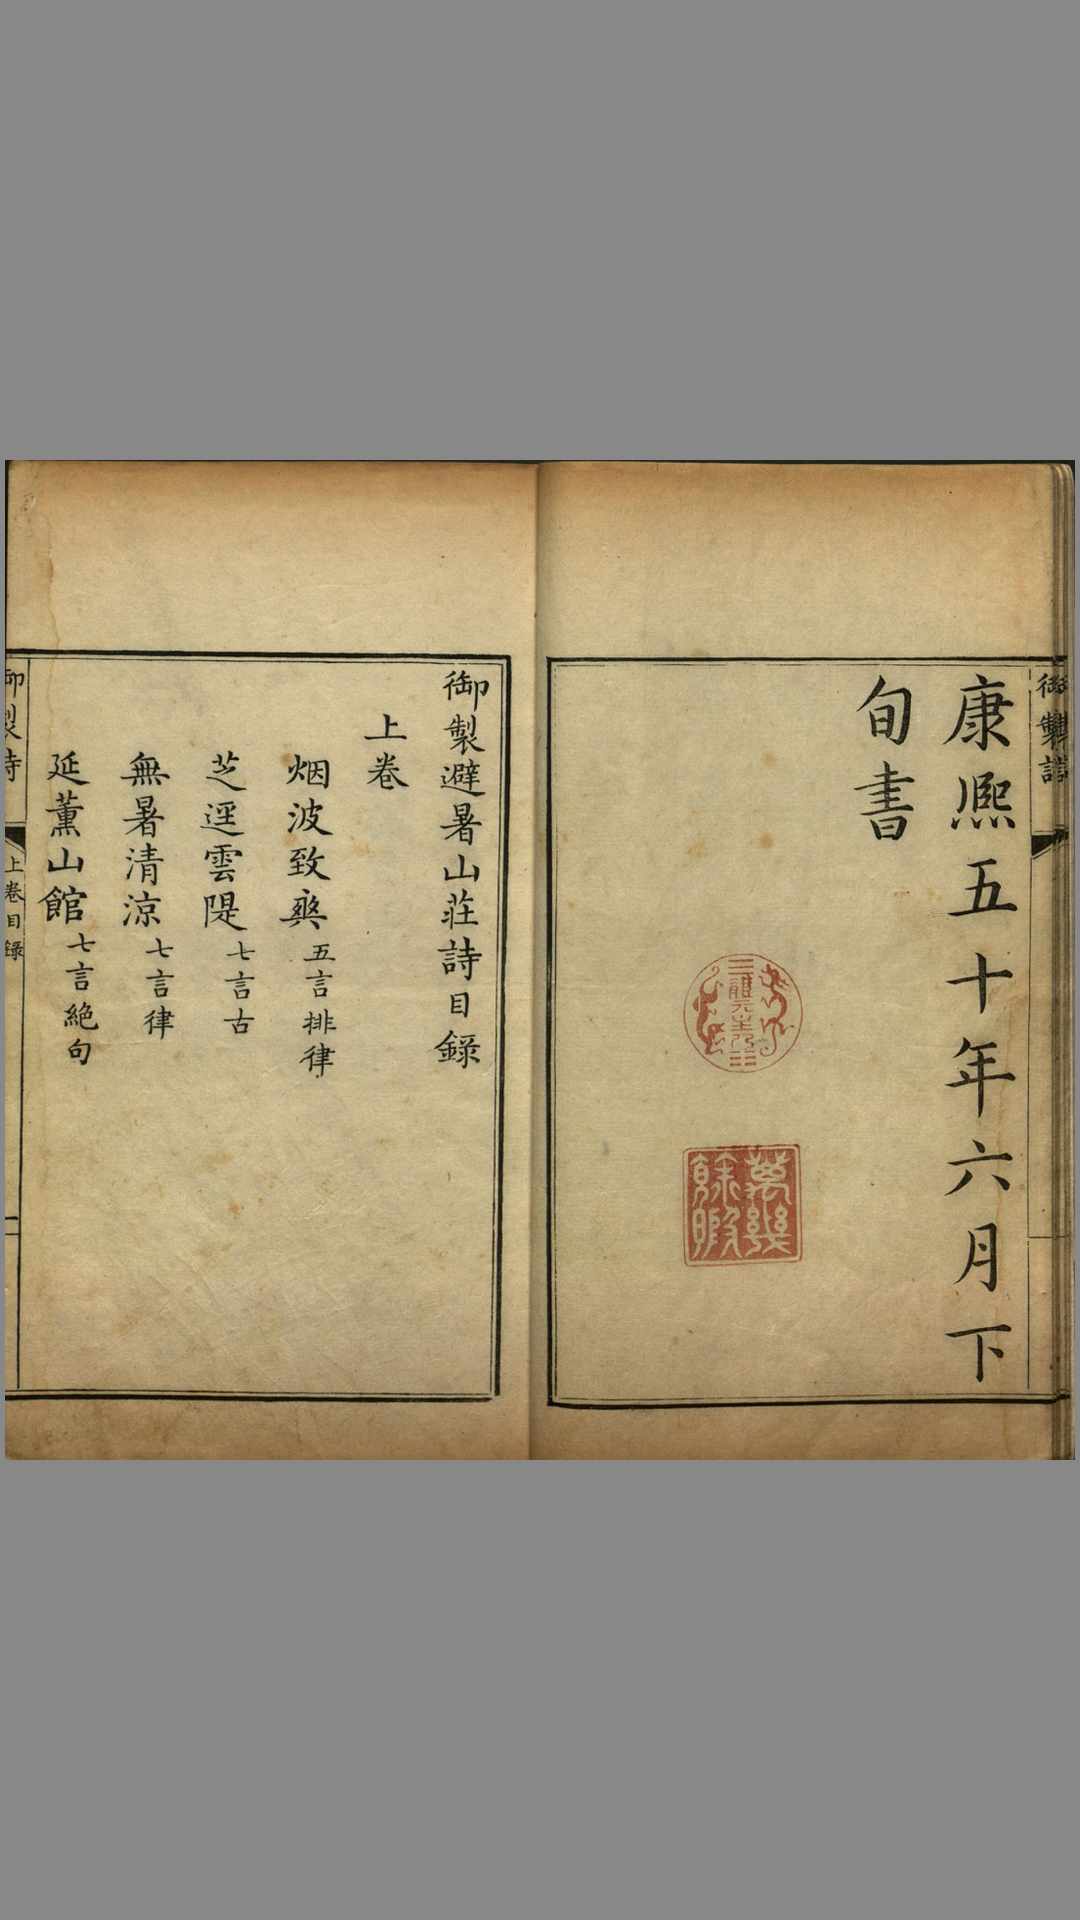 康熙五十年六月下
旬書
體元主人
萬幾餘暇
御製避暑山莊詩目錄
上卷
烟波致爽 五言排律
芝逕雲隄 七言古
無暑清涼 七言律
延薰山館 七言絶句
御製詩 上卷目錄 一